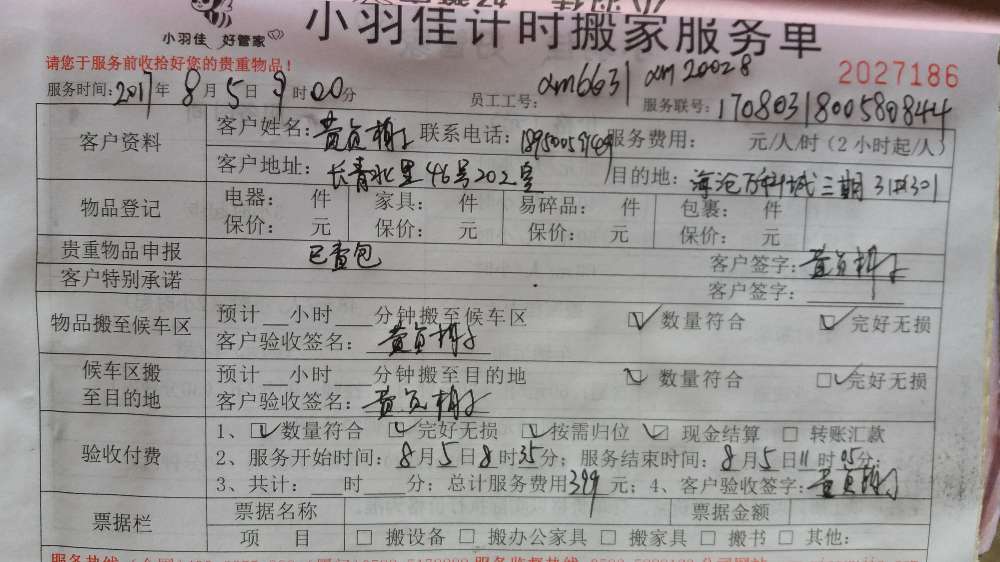 小羽佳计时搬家服务单
小羽佳 好管家
请您于服务前收拾好您的贵重物品！
2027186
服务时间：2017年8月5日9时00分 员工工号：xm6631 xm20028 服务联号：170803180058 0844
客户资料 客户姓名： 联系电话： 服务费用： 元/人/时（2小时起/人）
客户地址：长青北里46号202室 目的地：海沧万科城三期31#301
物品登记 电器： 件 家具： 件 易碎品： 件 包裹： 件
保价： 元 保价： 元 保价： 元 保价： 元
贵重物品申报 已查包 客户签字：
客户特别承诺 客户签字：
物品搬至候车区 预计__小时___分钟搬至候车区 ☑数量符合 ☑完好无损
客户验收签名：
候车区搬至目的地 预计__小时___分钟搬至目的地 ☑数量符合 ☑完好无损
客户验收签名：
验收付费 1、☑数量符合 ☑完好无损 ☑按需归位 ☑现金结算 □转账汇款
2、服务开始时间：8月5日8时35分；服务结束时间：8月5日11时05分；
3、共计：___时___分；总计服务费用399元；4、客户验收签字：
票据栏 票据名称 票据金额
项 目 □搬设备 □搬办公家具 □搬家具 □搬书 □其他：